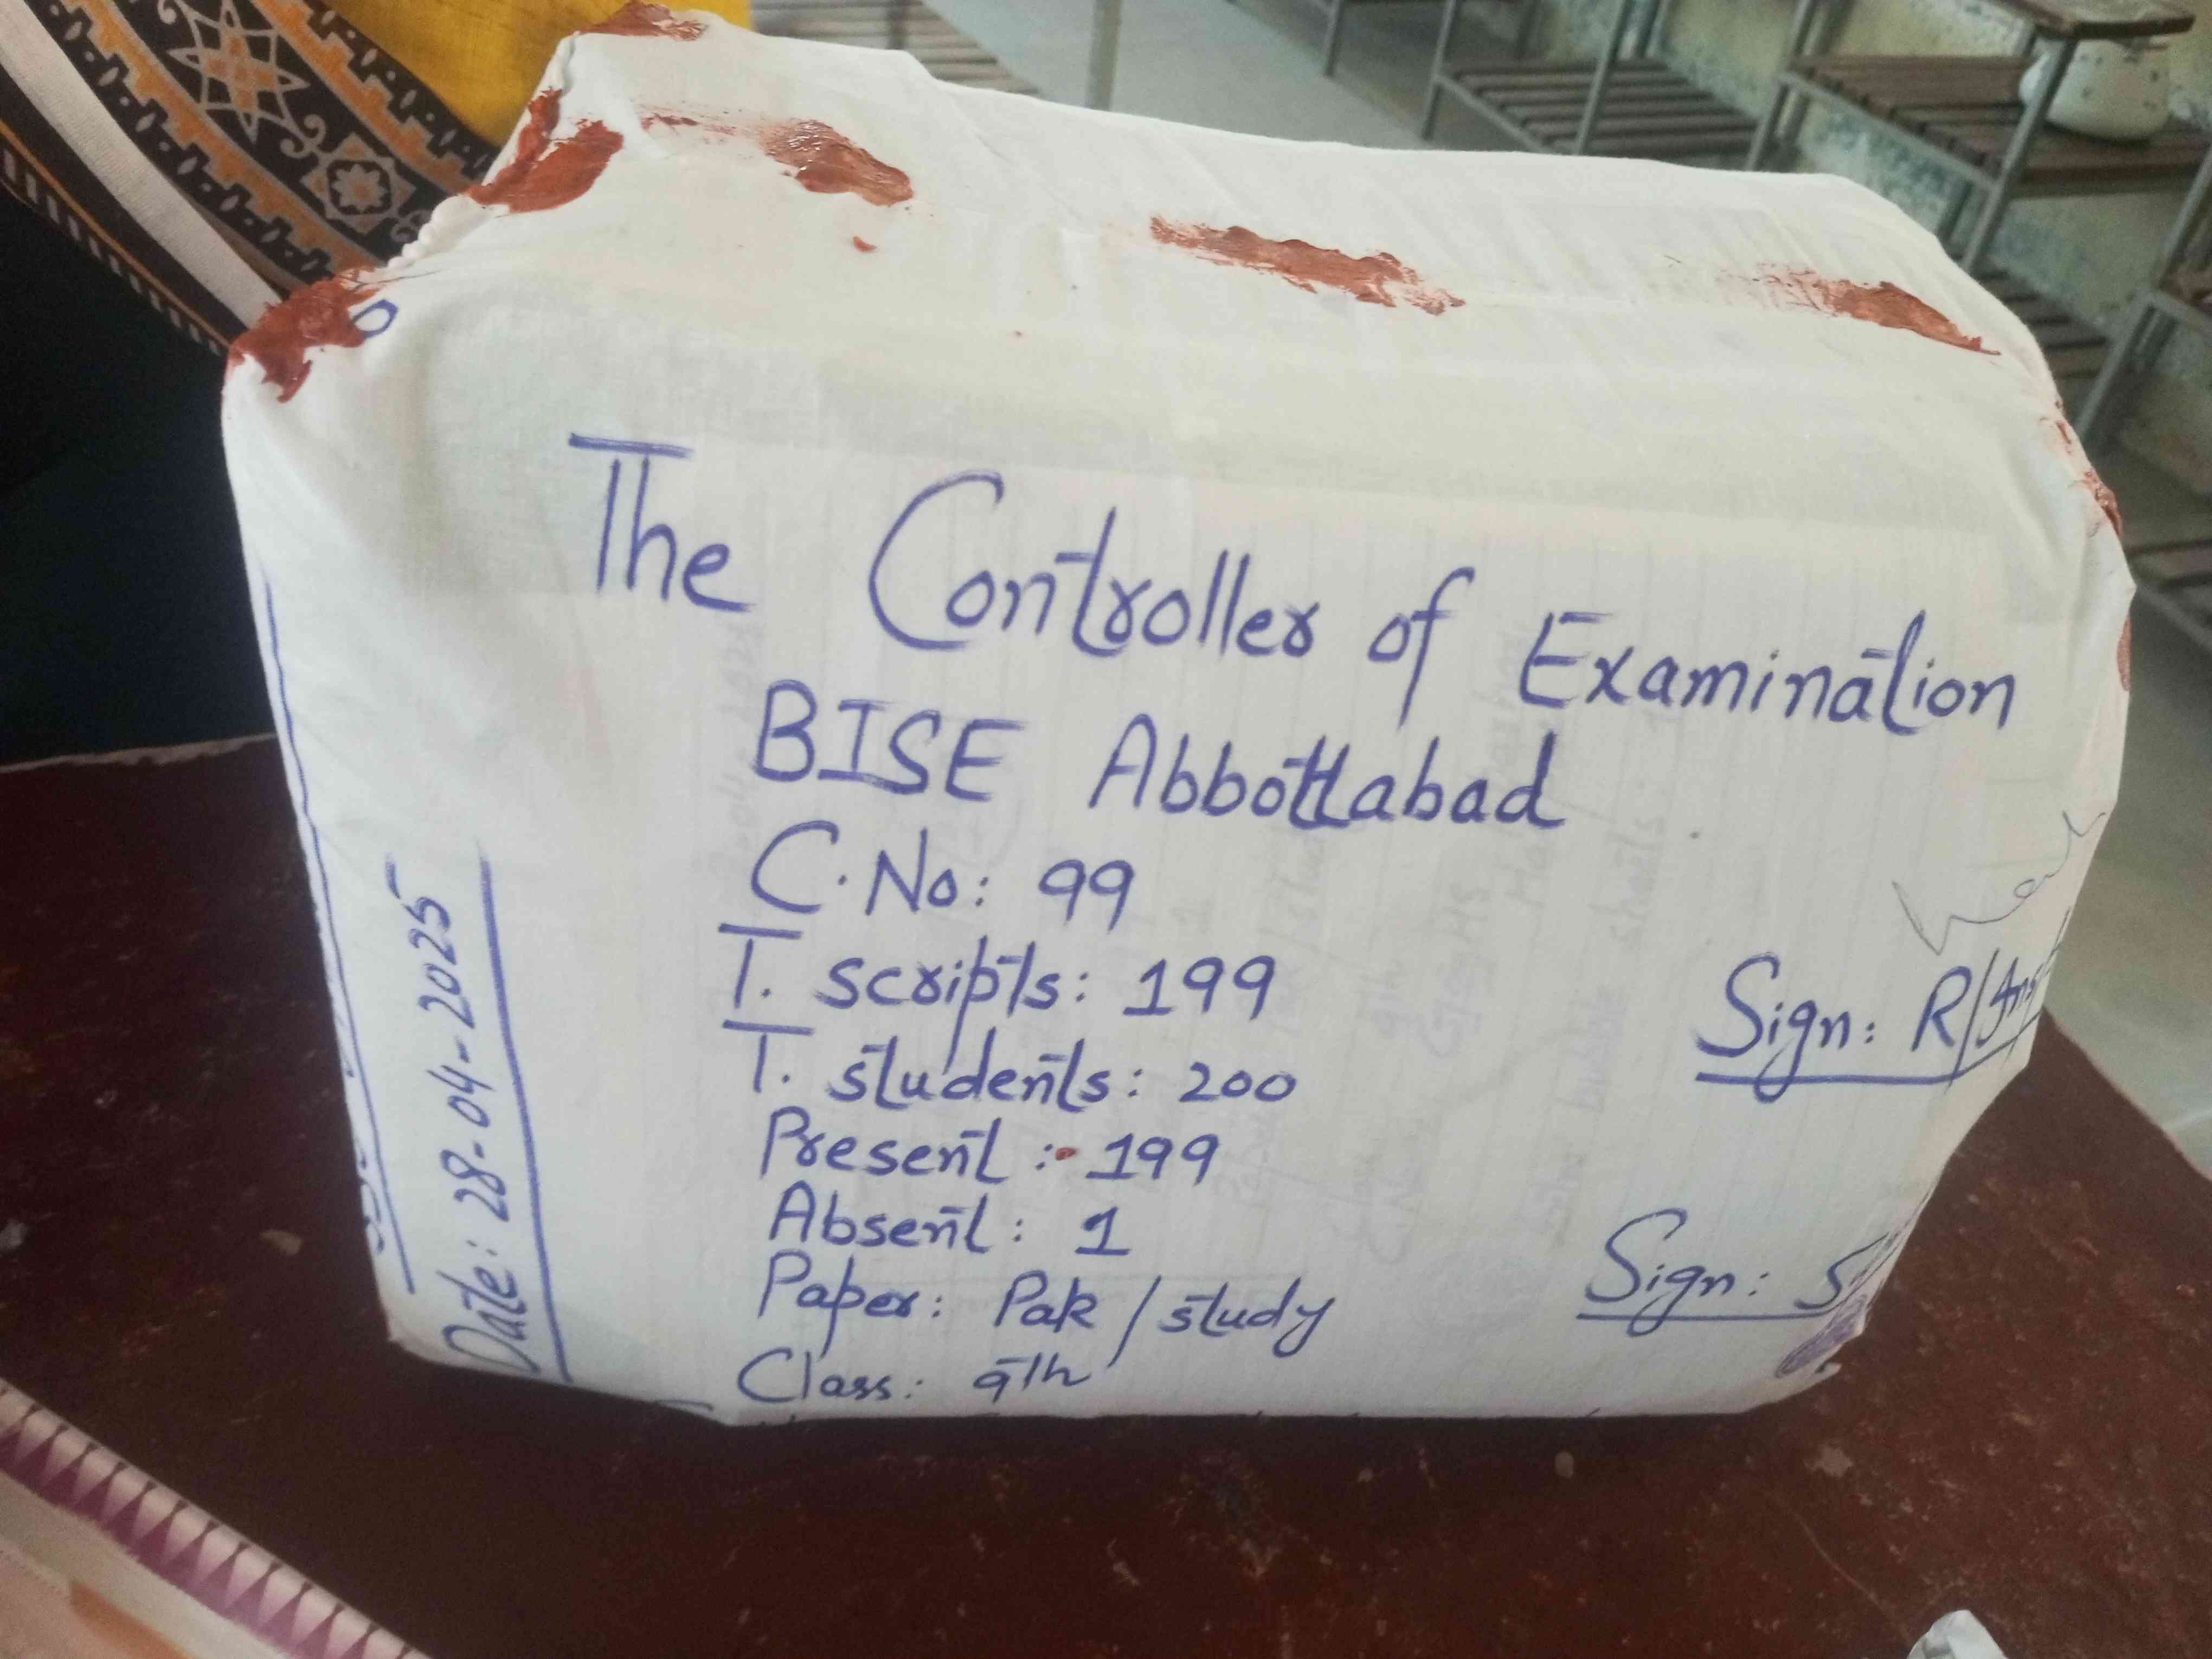 The Controller of Examination
BISE Abbottabad
C. No: 99
T. scripts: 199
T. students: 200
Present: 199
Absent: 1
Paper: Pak / study
Class: 9th
Sign: R/
Sign: S
Date: 28-04-2025